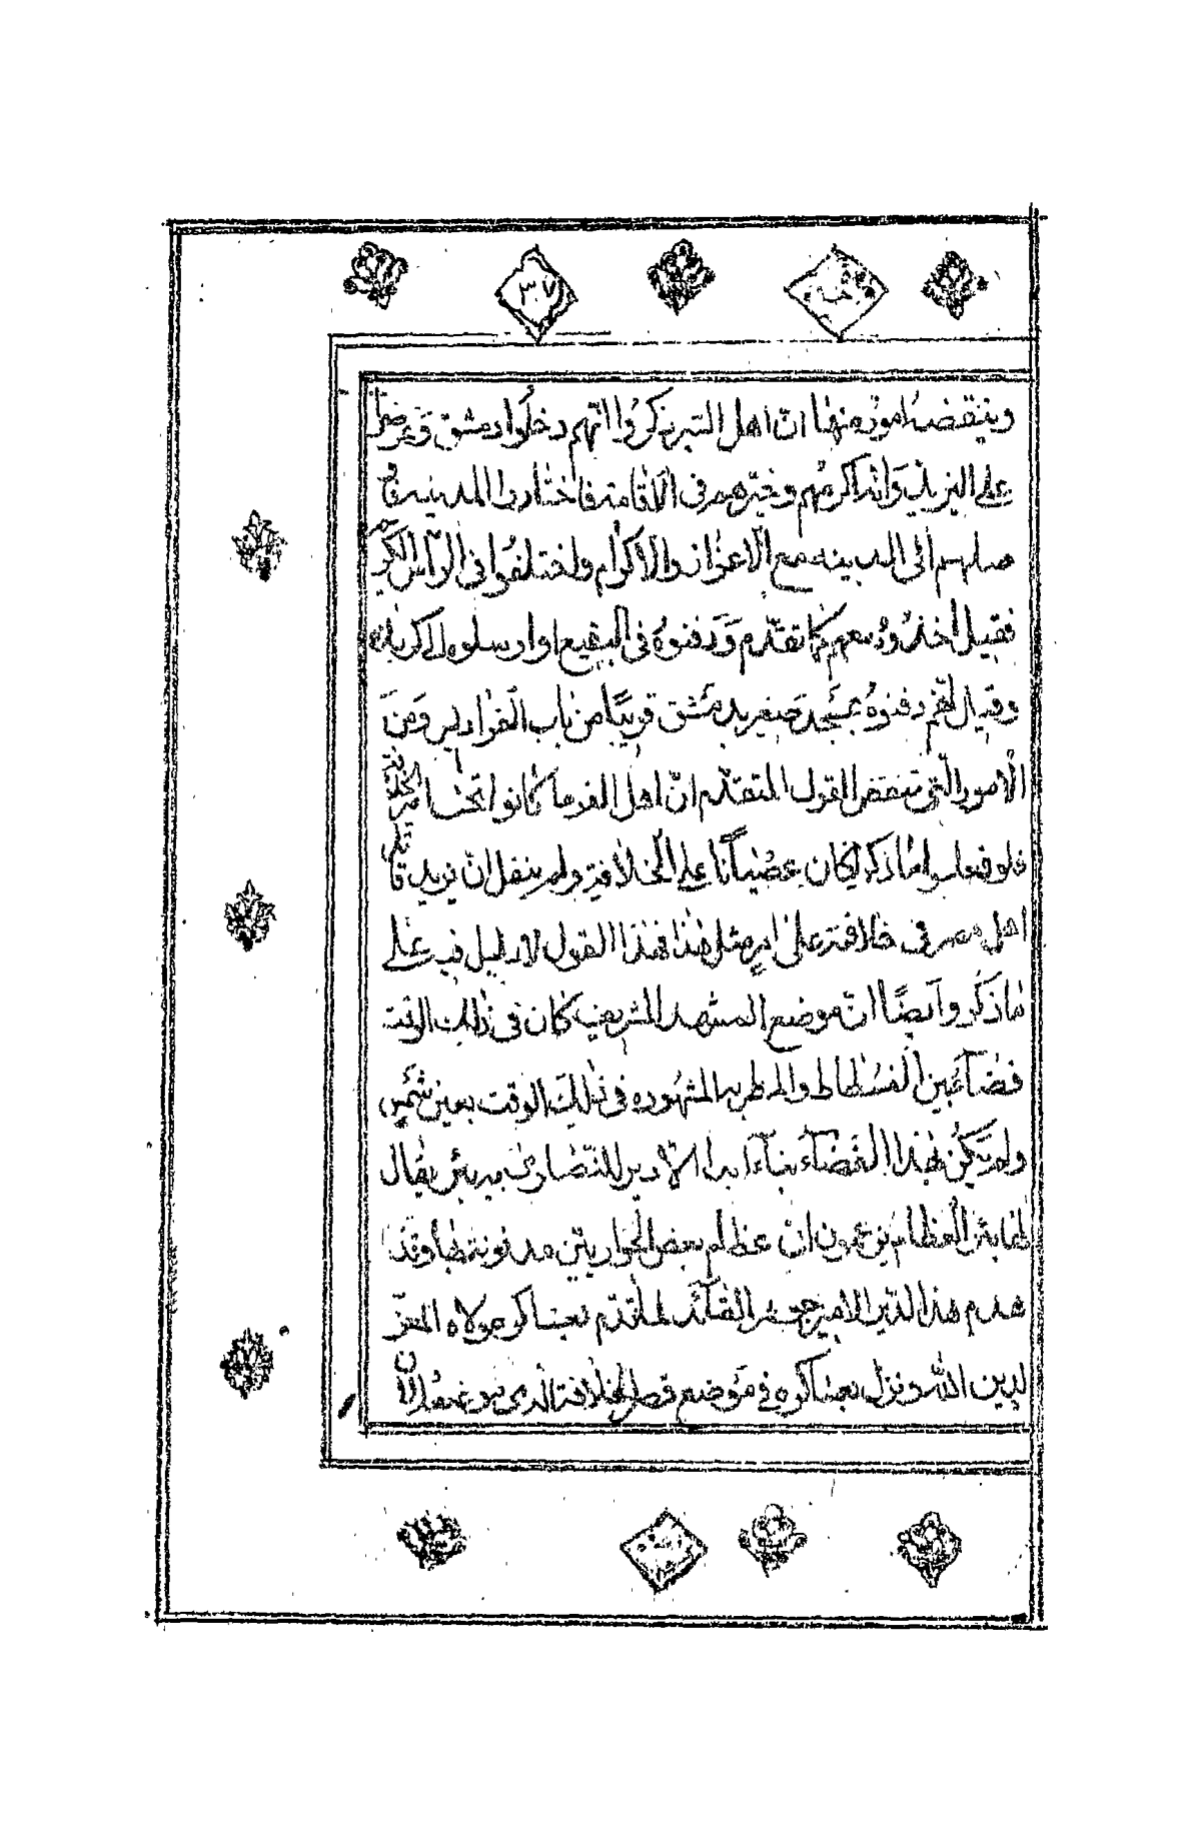 ٣٠٧
وينقضه امور منها ان اهل السير ذكروا انهم دخلوا دمشق وعرضوا
على اليزيد وانه اكرمهم وخيرهم فى الاقامة فاختاروا المدينه فار
صلهم الى المدينه مع الاعزاز والاكرام واختلفوا فى الرأس الكريم
فقيل اخذوه معهم كما تقدم ودفنوه فى البقيع او ارسلوه الى كربلاء
وقيل انهم دفنوه بمسجد صغير بدمشق قريبًا من باب الفراديس ومن
الامور التى تنقض القول المتقدم ان اهل الفرما كانوا تحت امر الخلافة
فلو فعلوا ما ذكر لكان عصيانًا على الخلافة ولم ينقل ان يزيد قاتل
اهل مصر فى خلافته على امرٍ مثل هذا فهذا القول لا دليل فيه على
ما ذكر وايضًا ان موضع المشهد الشريف كان فى ذلك الوقت
فضآء بين الفسطاط والمطريه المشهوره فى ذلك الوقت بعين شمس
ولم يكن بهذا الفضآء بناء ابدا الا دير للنصارى به بئر يقال
لها بئر العظام يزعمون ان عظام بعض الحواريين مدفونة بها وقد
هدم هذا الدير الامير جوهر القآئد لما قدم بعساكر مولاه المعز
لدين الله ونزل بعساكره فى موضع قصر الخلافة الذى هو عنه الآن